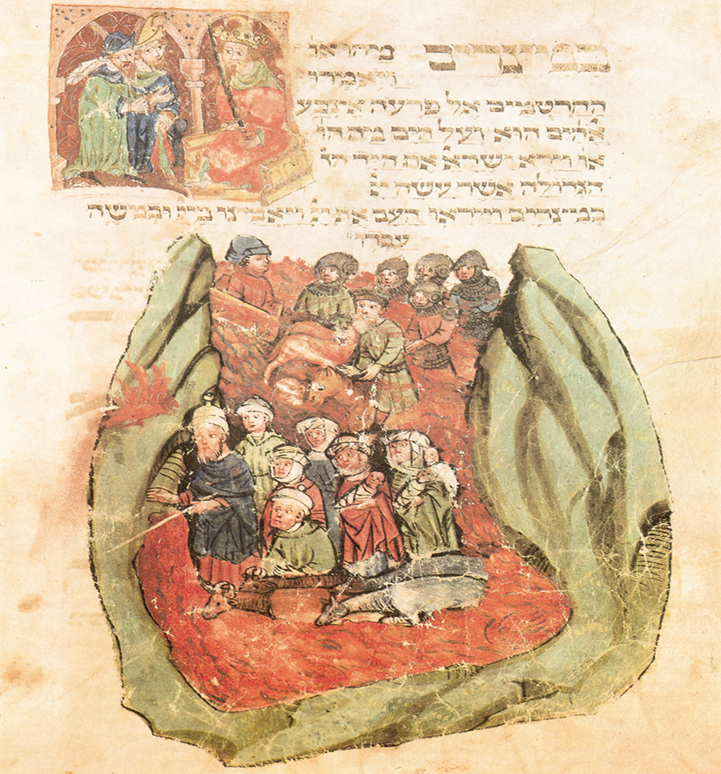 במצרים מהו או
ויאמרו
החרטמים אל פרעה אצבע
אלהים הוא ועל הים מה הו
או וירא ישרא את היד
הגדולה אשר עשה יי
במצרים וייראו העם את יי ויאמינו ביי ובמשה
עבדו